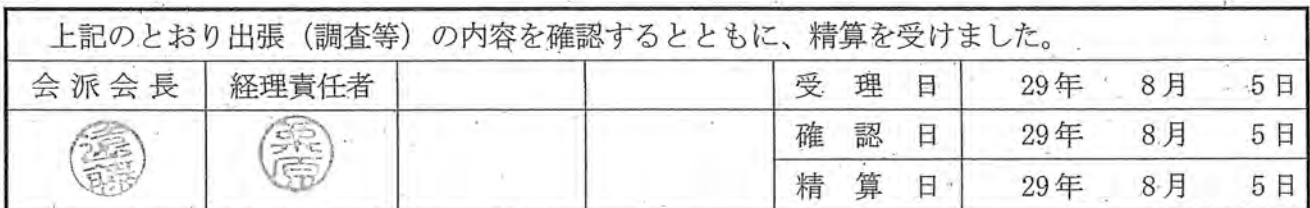 上記のとおり出張（調査等）の内容を確認するとともに、精算を受けました。
会派会長 経理責任者 受理日 29年 8月 5日
遠藤 栗原 確認日 29年 8月 5日
精算日 29年 8月 5日